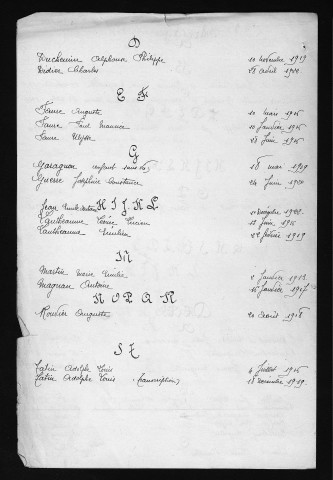 D
Duchemin Alphonse Philippe 10 novembre 1919
Verdier Charles 28 avril 1920
E F
Faure Auguste 10 mars 1915
Faure Paul Maurice 10 Janvier 1915
Faure Ulysse 28 Juin
G
Garagnon enfant sans vie 18 mai 1909
Guerre Joséphine Constance 24 Juin
Jean H I J K L
Lantheaume Léonie Lucien Juin 1915
Lantheaume Emilien 22 février 1919
M
Martin Marie Emilie Janvier 1913
Magnan Antoine 16 Janvier 1917
N O P Q R
Rouvier Auguste 20 août 1918
S T
Tatin Adolphe Louis 6 Juillet 1915
Tatin Adolphe Louis (transcription) 18 novembre 1919